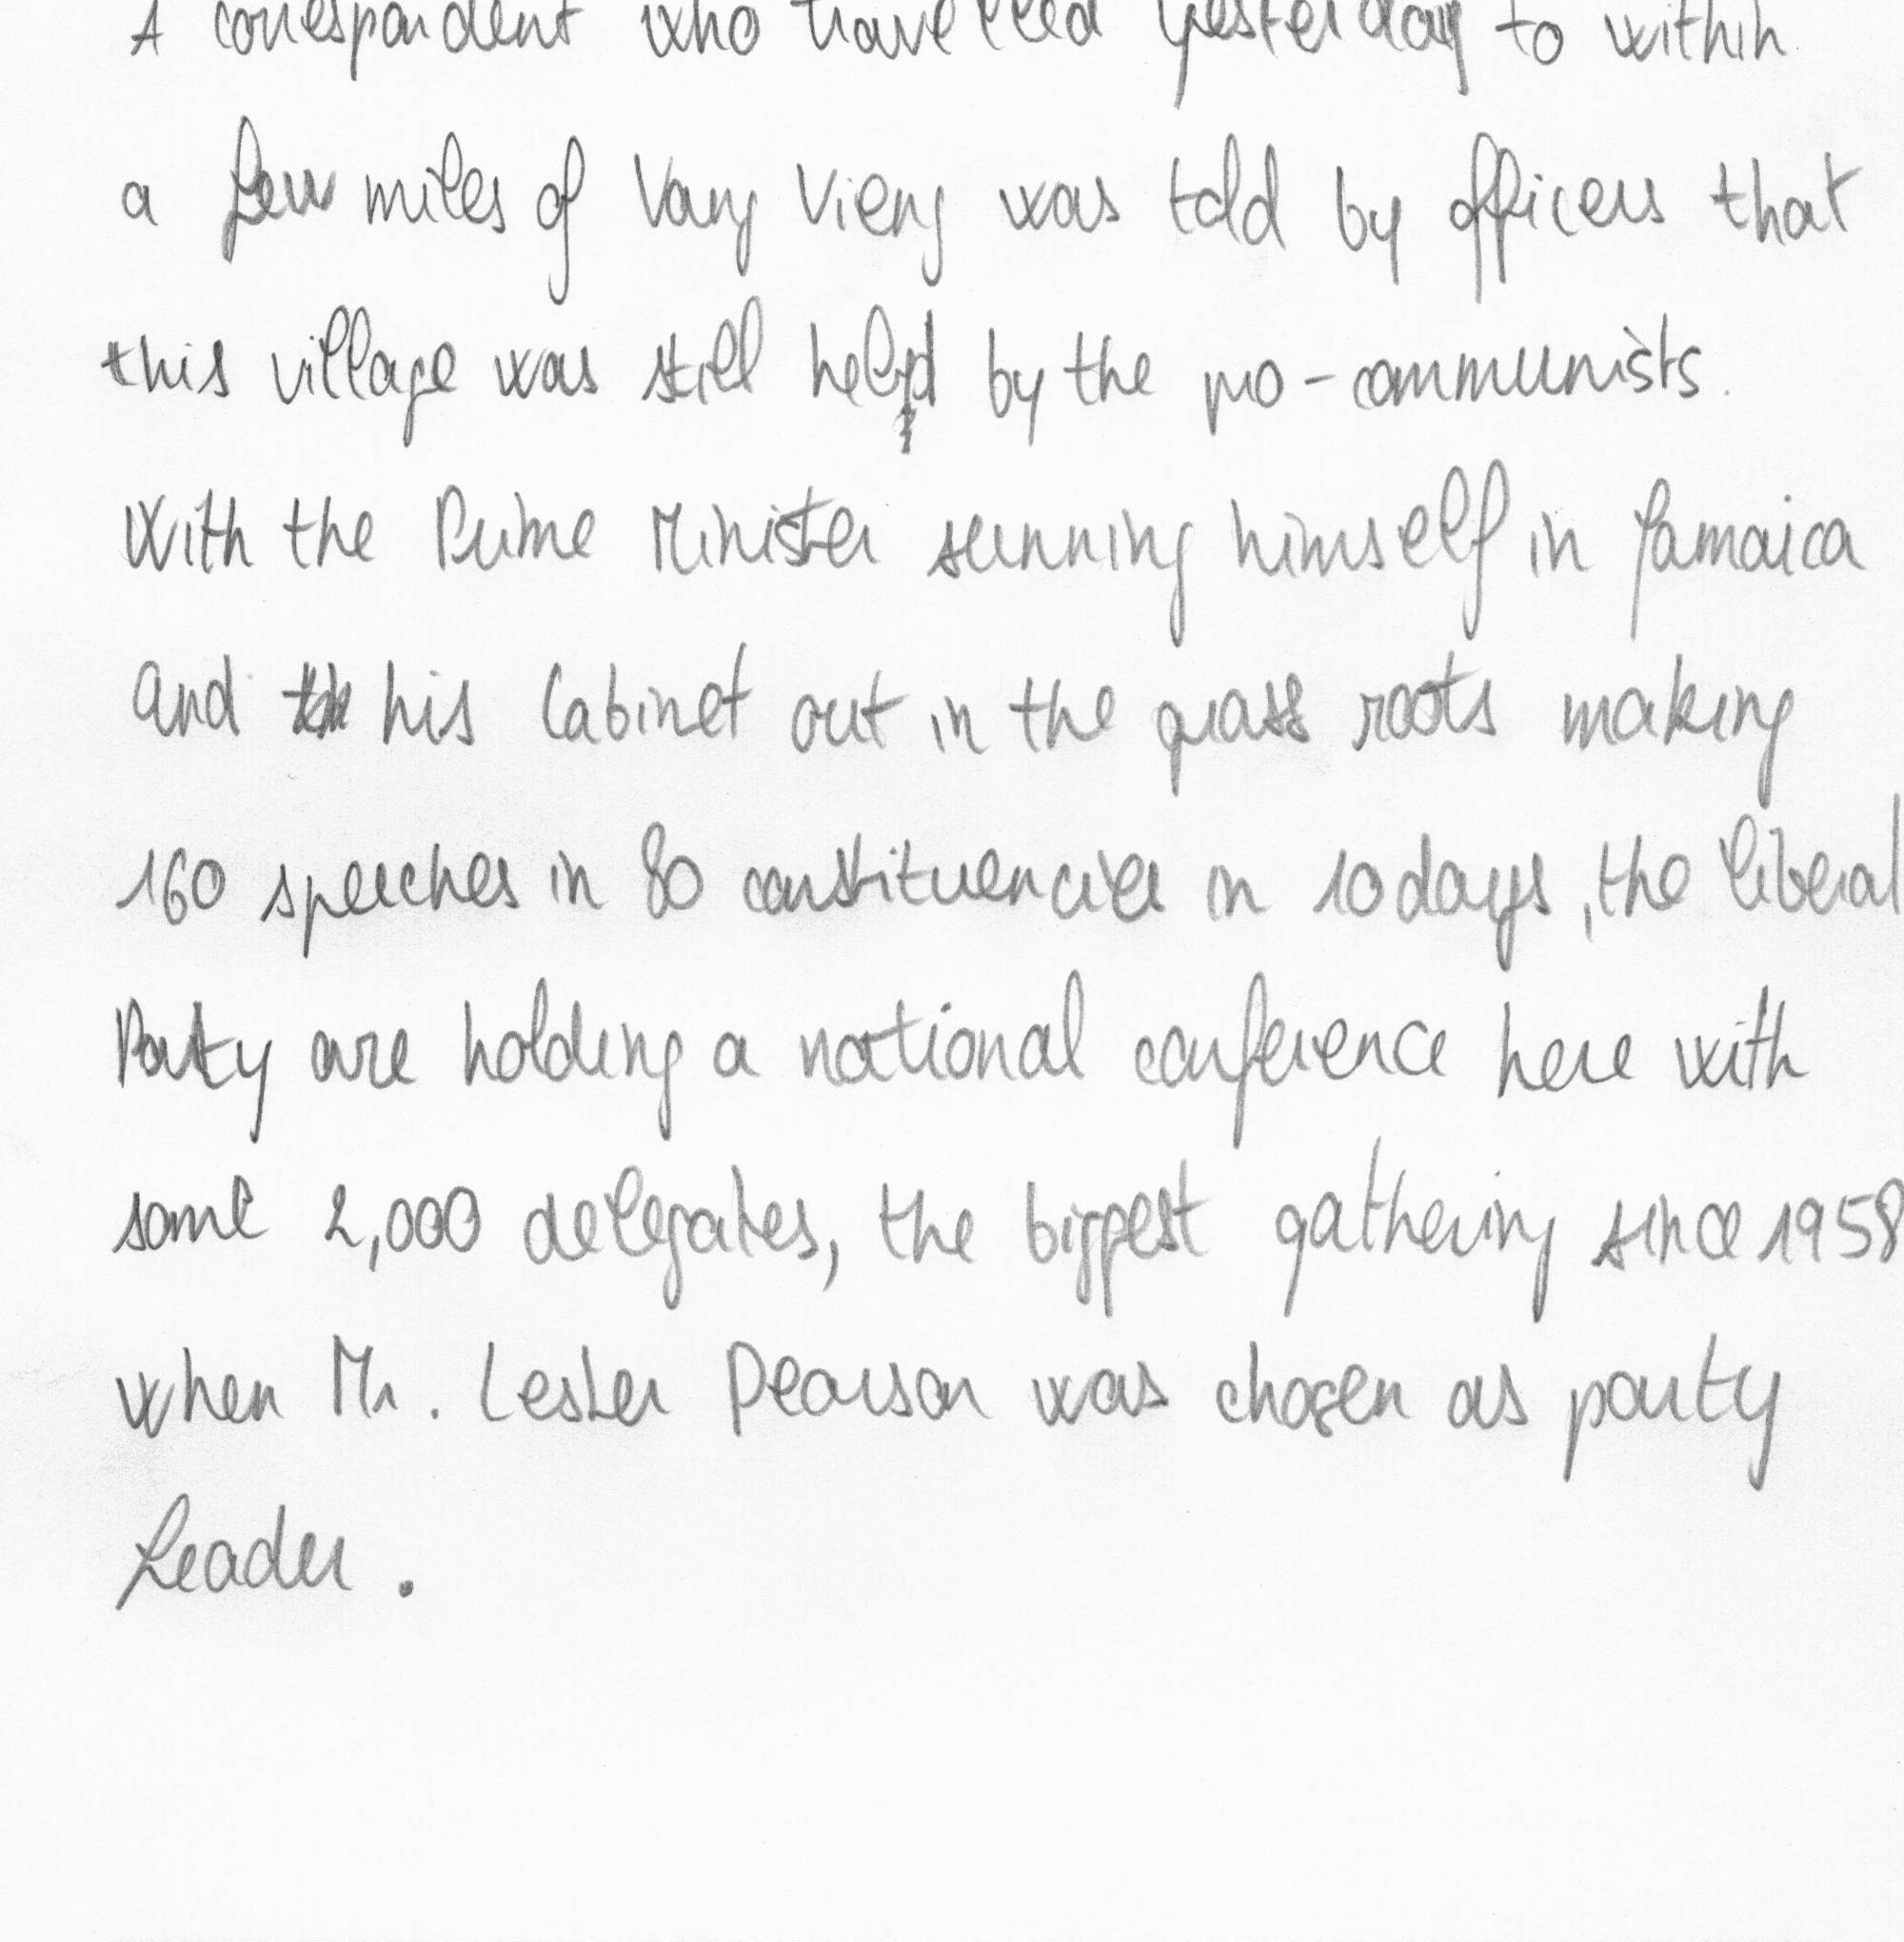 A correspondent who travelled yesterday to within
a few miles of Vang Vieng was told by officers that
this village was still held by the pro-communists.
With the Prime Minister sunning himself in Jamaica
and his Cabinet out in the grass roots making
160 speeches in 80 constituencies in 10 days, the liberal
Party are holding a national conference here with
some 2,000 delegates, the biggest gathering since 1958
when Mr. Lester Pearson was chosen as party
Leader.